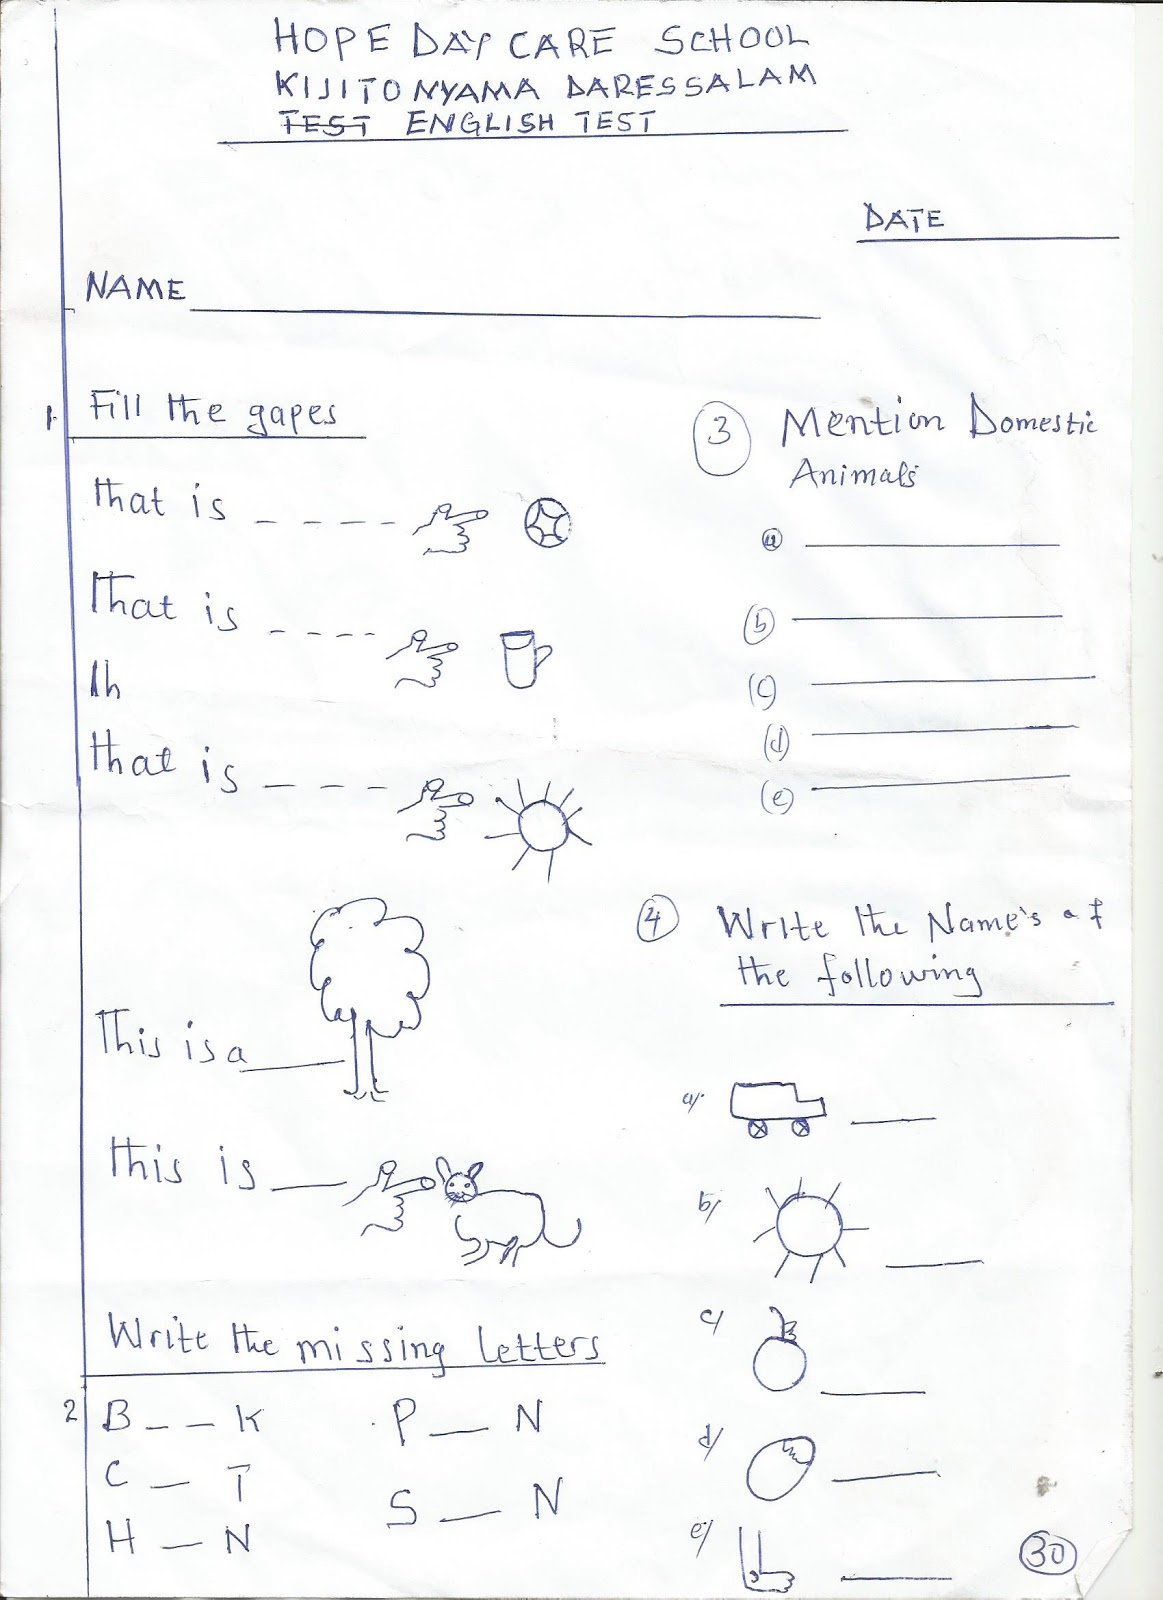 HOPE DAY CARE SCHOOL
KIJITONYAMA DARESSALAM
TEST ENGLISH TEST
DATE
NAME
1. Fill the gapes
that is _ _ _ _
That is _ _ _ _
Th
that is _ _ _ _
This is a ___
this is ___
Write the missing letters
2 B _ _ K
C _ T
H _ N
P _ N
S _ N
3 Mention Domestic
Animals
(a)
(b)
(c)
(d)
(e)
4 Write the Name's of
the following
a/
b/
c/
d/
e/
30